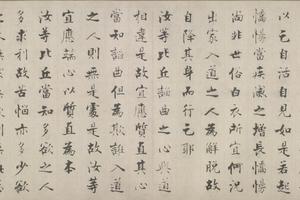 以乞自活自見如是若起
憍慢當疾滅之增長憍慢
尚非世俗白衣所宜何況
出家入道之人為解脫故
自降其身而行乞耶
汝等比丘諂曲之心與道
相違是故宜應質直其心
當知諂曲但為欺誑入道
之人則無是處是故汝等
宜應端心以質直為本
汝等比丘當知多欲之人
多求利故苦惱亦多少欲